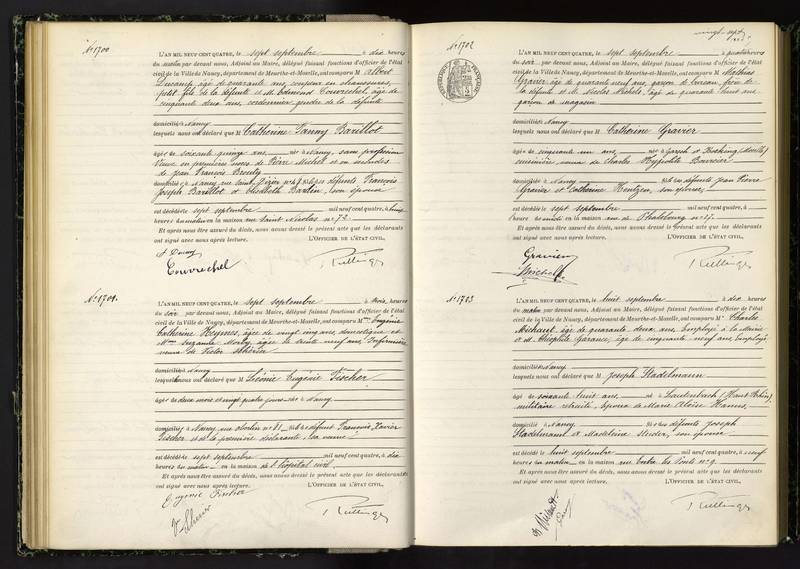 N° 1700
L'AN MIL NEUF CENT QUATRE, le sept septembre à dix heures
du matin par devant nous, Adjoint au Maire, délégué faisant fonctions d'officier de l'état
civil de la Ville de Nancy, département de Meurthe-et-Moselle, ont comparu M Albert
âgé de quarante ans, coupeur en chaussures,
petit fils de la défunte et M. Edmond Couvrechel, âgé de
cinquante deux ans, cordonnier, gendre de la défunte
domiciliés à Nancy
lesquels nous ont déclaré que M Catherine Fanny Barillot
âgée de soixante quinze ans, née à Nancy, sans profession
Veuve en premières noces de Pierre Michel et en secondes
de Jean François
domiciliée à Nancy, rue Saint Dizier n° fille des défunts François
Joseph Barillot et Elisabeth son épouse
est décédée le sept septembre mil neuf cent quatre, à
heures du matin en la maison rue Saint Nicolas n° 72
Et après nous être assuré du décès, nous avons dressé le présent acte que les déclarants
ont signé avec nous après lecture. L'OFFICIER DE L'ÉTAT CIVIL,
Couvrechel
N° 1701.
L'AN MIL NEUF CENT QUATRE, le sept septembre à trois heures
du soir par devant nous, Adjoint au Maire, délégué faisant fonctions d'officier de l'état
civil de la Ville de Nancy, département de Meurthe-et-Moselle, ont comparu Mme Eugénie
Catherine âgée de vingt cinq ans, domestique et
Mme Suzanne âgée de trente neuf ans, Infirmière
veuve de Victor
domiciliées à Nancy
lesquels nous ont déclaré que M Léonie Eugénie Fischer
âgée de deux mois et vingt quatre jours née à Nancy
domiciliée à Nancy, rue n° 81 fille de défunt François Xavier
Fischer et de la première déclarante, sa veuve
est décédée le sept septembre mil neuf cent quatre, à dix
heures du matin en la maison de l'hôpital civil
Et après nous être assuré du décès, nous avons dressé le présent acte que les déclarants
ont signé avec nous après lecture. L'OFFICIER DE L'ÉTAT CIVIL,
Eugénie Fischer
N° 1702
vingt-sept
L'AN MIL NEUF CENT QUATRE, le sept septembre à quatre heures
du soir par devant nous, Adjoint au Maire, délégué faisant fonctions d'officier de l'état
civil de la Ville de Nancy, département de Meurthe-et-Moselle, ont comparu M Mathias
Gravier âgé de quarante neuf ans, garçon de bureau, frère de
la défunte et M. Nicolas Michels, âgé de quarante huit ans
garçon de magasin
domiciliés à Nancy
lesquels nous ont déclaré que M Catherine Gravier
âgée de cinquante un ans née à Garsch
cuisinière, veuve de Charles Hyppolite
domiciliée à Nancy fille des défunts Jean Pierre
Gravier et Catherine Hentzen, son épouse
est décédée le sept septembre mil neuf cent quatre, à
heure en la maison rue de Phalsbourg n° 17.
Et après nous être assuré du décès, nous avons dressé le présent acte que les déclarants
ont signé avec nous après lecture. L'OFFICIER DE L'ÉTAT CIVIL,
Gravier
Michels
N° 1703
L'AN MIL NEUF CENT QUATRE, le huit septembre à dix heures
du matin par devant nous, Adjoint au Maire, délégué faisant fonctions d'officier de l'état
civil de la Ville de Nancy, département de Meurthe-et-Moselle, ont comparu M Charles
Michaut, âgé de quarante deux ans, Employé à la Mairie
et M. Théophile Garance, âgé de cinquante neuf ans, Employé
domiciliés à Nancy
lesquels nous ont déclaré que M Joseph Stadelmann
âgé de soixante huit ans né à Lautenbach (Haut Rhin)
militaire retraité, époux de Marie Aloïse Hanus,
domicilié à Nancy fils des défunts Joseph
Stadelmann et Madeleine son épouse
est décédé le huit septembre mil neuf cent quatre, à neuf
heures du matin en la maison rue Entre les Ponts n° 9.
Et après nous être assuré du décès, nous avons dressé le présent acte que les déclarants
ont signé avec nous après lecture. L'OFFICIER DE L'ÉTAT CIVIL,